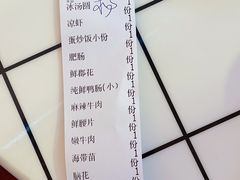 冰汤圆 1份
凉虾 1份
蛋炒饭小份 1份
肥肠 1份
鲜郡花 1份
纯鲜鸭肠(小) 1份
麻辣牛肉 1份
鲜腰片 1份
嫩牛肉 1份
海带苗 1份
脑花 1份